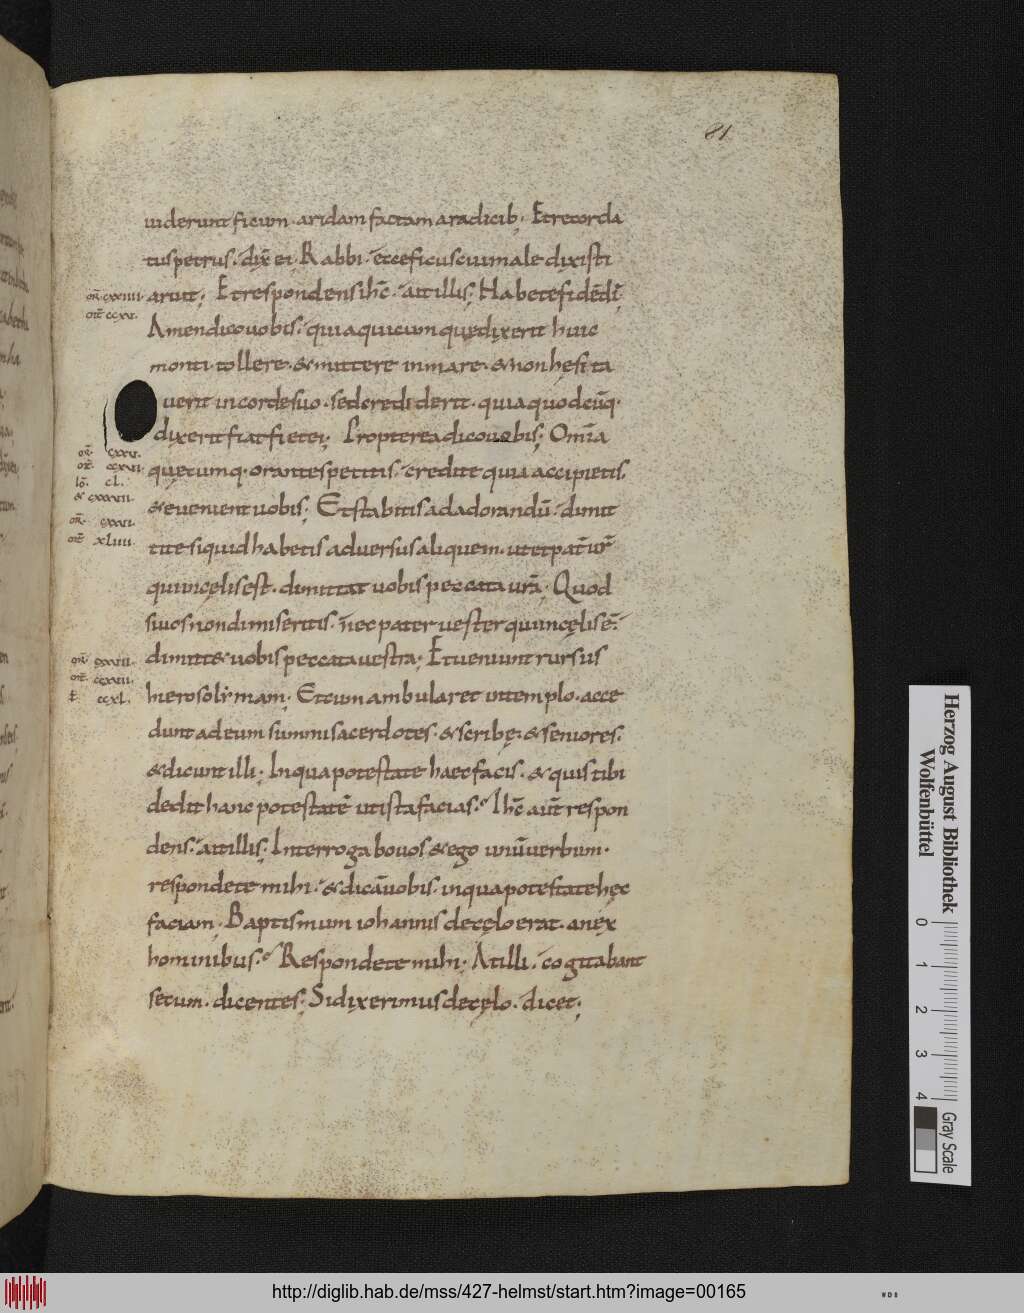 81
uiderunt ficum · aridam factam a radicib; · Et recorda
tus petrus · dix̄ ei · Rabbi · ecce ficus cui male dixisti
aruit; Et respondens ihc̄ · ait illis; Habete fidē dī;
Amen dico uobis · quia quicumque dixerit huic
monti · tollere · & mittere in mare · & non hęsita
uerit in corde suo · sed crediderit · quia quodcūq·
dixerit fiat fiet ei; Propterea dico uobis; Om̄ia
quęcumq· orantes petitis · credite quia accipietis;
& euenient uobis; Et stabitis ad adorandū · dimit
tite si quid habetis aduersus aliquem · ut et pat̄ ur̄
qui in cęlis est · dimittat uobis peccata ur̄a · Quod
si uos non dimiseritis · nec pater uester qui in cęlis ē ·
dimittet uobis peccata uestra; Et ueniunt rursus
hierosolimam · Et cum ambularet in templo · acce
dunt ad eum summi sacerdotes · & scribę · & seniores ·
& dicunt illi · In qua potestate haec facis · & quis tibi
dedit hanc potestatē ut ista facias · Ihc̄ aut̄ respon
dens · ait illis; Interrogabo uos & ego unū uerbum ·
respondete mihi · & dicā uobis · in qua potestate hęc
faciam; Baptismum iohannis de cęlo erat · an ex
hominibus · Respondete mihi · At illi · cogitabant
secum · dicentes; Si dixerimus de cęlo · dicet;
Herzog August Bibliothek
Wolfenbüttel
0 1 2 3 4
Gray Scale
http://diglib.hab.de/mss/427-helmst/start.htm?image=00165